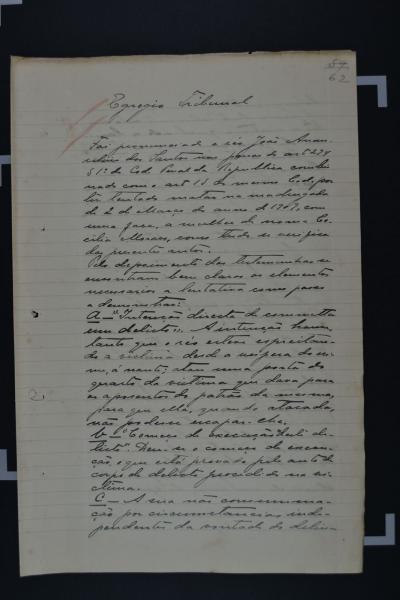 57
62
Egregio Tribunal
Foi pronunciado o réo João Anau-
dos Santos nas penas do art 294
§ 1º do Cod. Penal da Republica combi-
nado com o art 13 do mesmo Cod. por
ter tentado matar na madrugada
de 2 de Março do anno de 1909, com
uma faca, a mulher de nome Ce-
cilia Moraes, como tudo se verifica
dos presentes autos.
Pelo depoimento das testemunhas se
encontram bem claros os elementos
necessarios a tentativa como passo
a demonstrar:
A – "Intenção directa de commetter
um delicto". A intenção houve,
tanto que o réo esteve espreitan-
do a victima desde a vespera do cri-
me, á noute, atou uma porta do
quarto da victima que dava para
os aposentos do patrão da mesma,
para que ella, quando atacada,
não podesse escapar-lhe.
B – "Começo de execução deste de-
licto". Deu-se o começo de execu-
ção, o que está provado pelo auto de
corpo de delicto procedido na vi-
ctima.
C – A sua não consumma-
ção por circumstancias inde-
pendentes da vontade do delin-